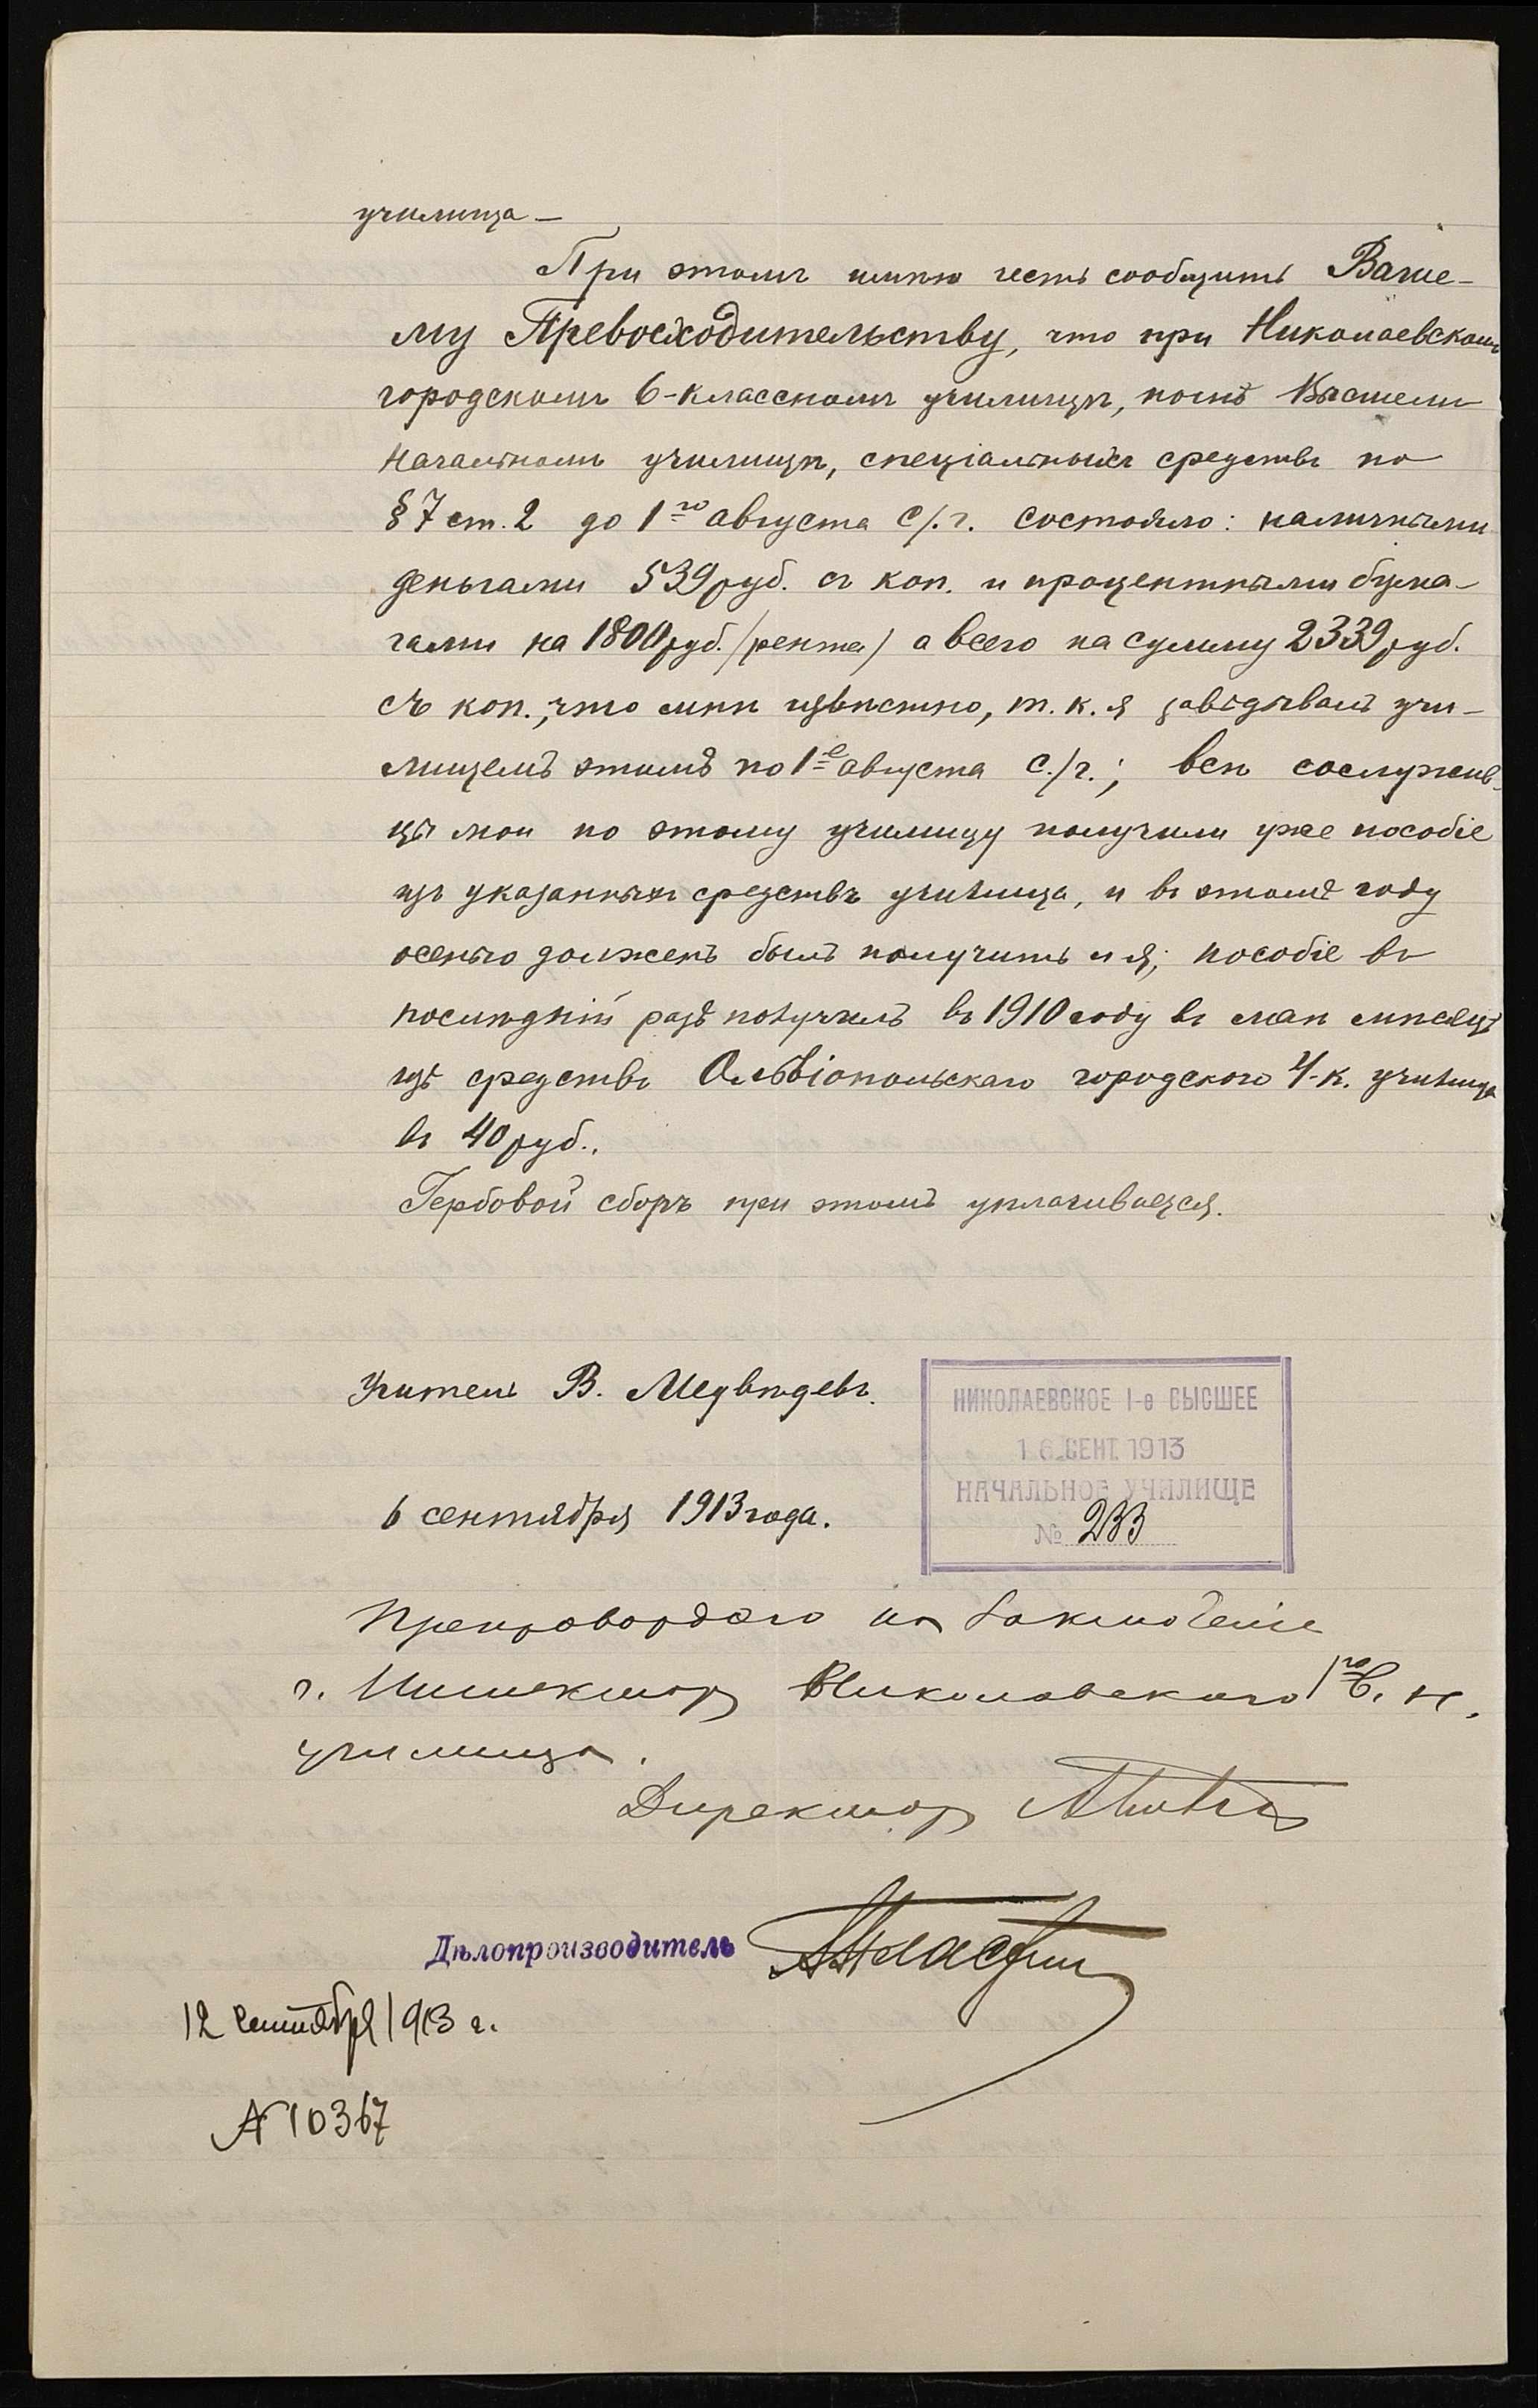 училища —
При этомъ имѣю честь сообщить Ваше-
му Превосходительству, что при Николаевскомъ
городскомъ 6-классномъ училищѣ, нынѣ Высшемъ
начальномъ училищѣ, спеціальныхъ средствъ по
§ 7 ст. 2 до 1го августа с/.г. состояло: наличными
деньгами 539 руб. съ коп. и процентными бума-
гами на 1800 руб. /рента/ а всего на сумму 2339 руб.
съ коп., что мнѣ извѣстно, т. к. я завѣдывалъ учи-
лищемъ этимъ по 1е августа с./г.; всѣ сослужив-
цы мои по этому училищу получили уже пособіе
изъ указанныхъ средствъ училища, и въ этомъ году
осенью долженъ былъ получить и я; пособіе въ
послѣдній разъ получилъ въ 1910 году въ маѣ мѣсяцѣ
изъ средствъ Ольвіопольскаго городского 4-к. училища
въ 40 руб..
Гербовой сборъ при этомъ уплачивается.
Учитель В. Медвѣдевъ.
НИКОЛАЕВСКОЕ I-е ВЫСШЕЕ
16 СЕНТ. 1913
НАЧАЛЬНОЕ УЧИЛИЩЕ
№ 233
6 сентября 1913 года.
Препровождаю на заключеніе
г. Инспектора Николаевскаго 1го В. Н.
училища.
Директоръ
Дѣлопроизводитель
12 сентября 1913 г.
№ 10367